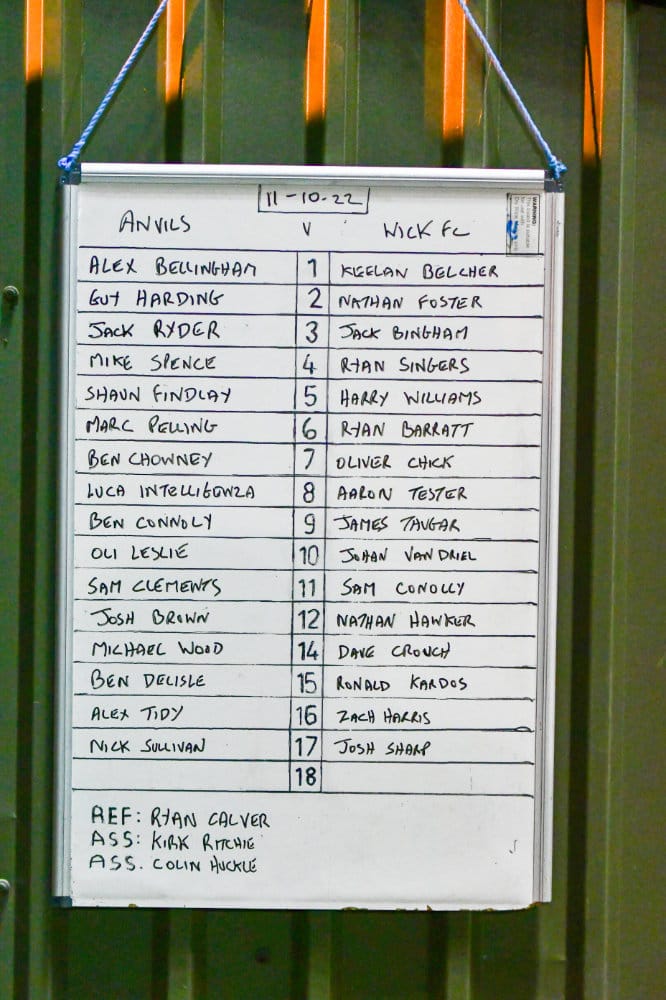 11-10-22
ANVILS V WICK FC
ALEX BELLINGHAM 1 KEELAN BELCHER
GUY HARDING 2 NATHAN FOSTER
JACK RYDER 3 JACK BINGHAM
MIKE SPENCE 4 RYAN SINGERS
SHAUN FINDLAY 5 HARRY WILLIAMS
MARC PELLING 6 RYAN BARRATT
BEN CHOWNEY 7 OLIVER CHICK
LUCA INTELLIGENZA 8 AARON TESTER
BEN CONNOLY 9 JAMES TAUGAR
OLI LESLIE 10 JOHAN VAN DRIEL
SAM CLEMENTS 11 SAM CONOLLY
JOSH BROWN 12 NATHAN HAWKER
MICHAEL WOOD 14 DAVE CROUCH
BEN DELISLE 15 RONALD KARDOS
ALEX TIDY 16 ZACH HARRIS
NICK SULLIVAN 17 JOSH SHARP
18
REF: RYAN CALVER
ASS: KIRK RITCHIE
ASS. COLIN HUCKLE
WARNING: